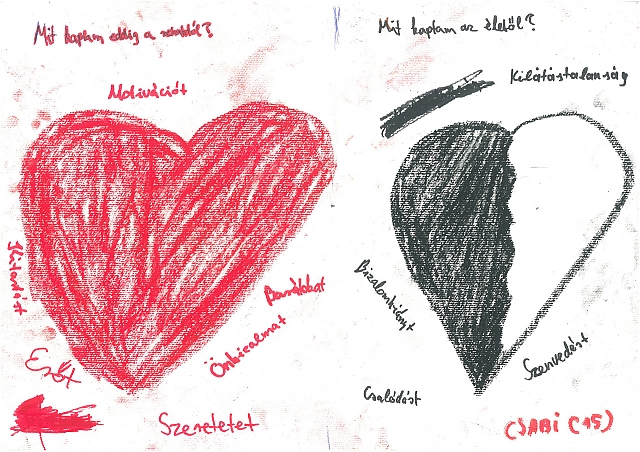 Mit kaptam eddig a rehabtól?
Motivációt
Kitartást
Barátokat
Önbizalmat
Erőt
Szeretetet
Mit kaptam az élettől?
Kilátástalanság
Bizalomhiányt
Szenvedést
Csalódást
CSABI (15)